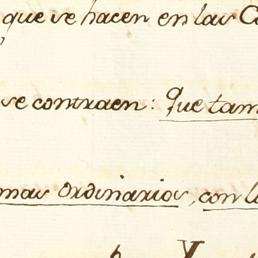 que se hacen en las C
se contraen: Que tam
mas Ordinarios, con l